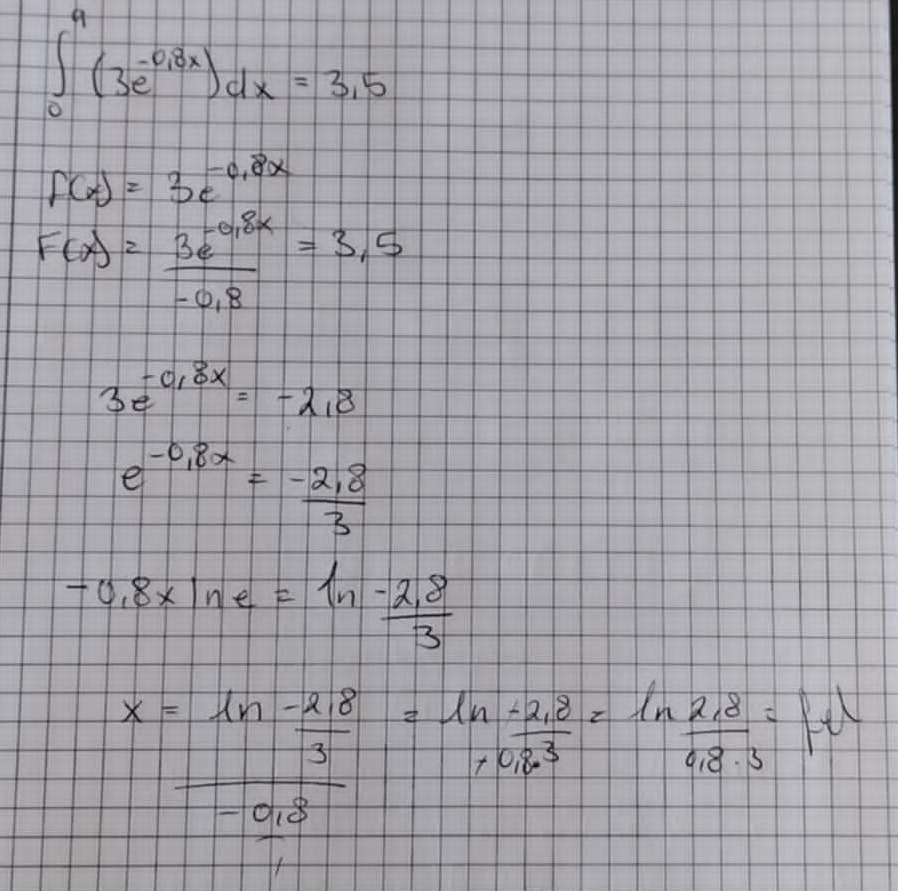 ∫₀ᵃ (3e^{-0,8x})dx = 3,5
f(x) = 3e^{-0,8x}
F(x) = \frac{3e^{-0,8x}}{-0,8} = 3,5
3e^{-0,8x} = -2,8
e^{-0,8x} = \frac{-2,8}{3}
-0,8x ln e = ln \frac{-2,8}{3}
x = \frac{ln \frac{-2,8}{3}}{\frac{-0,8}{1}} = ln \frac{-2,8}{+0,8·3} = ln \frac{2,8}{0,8·3} = fel